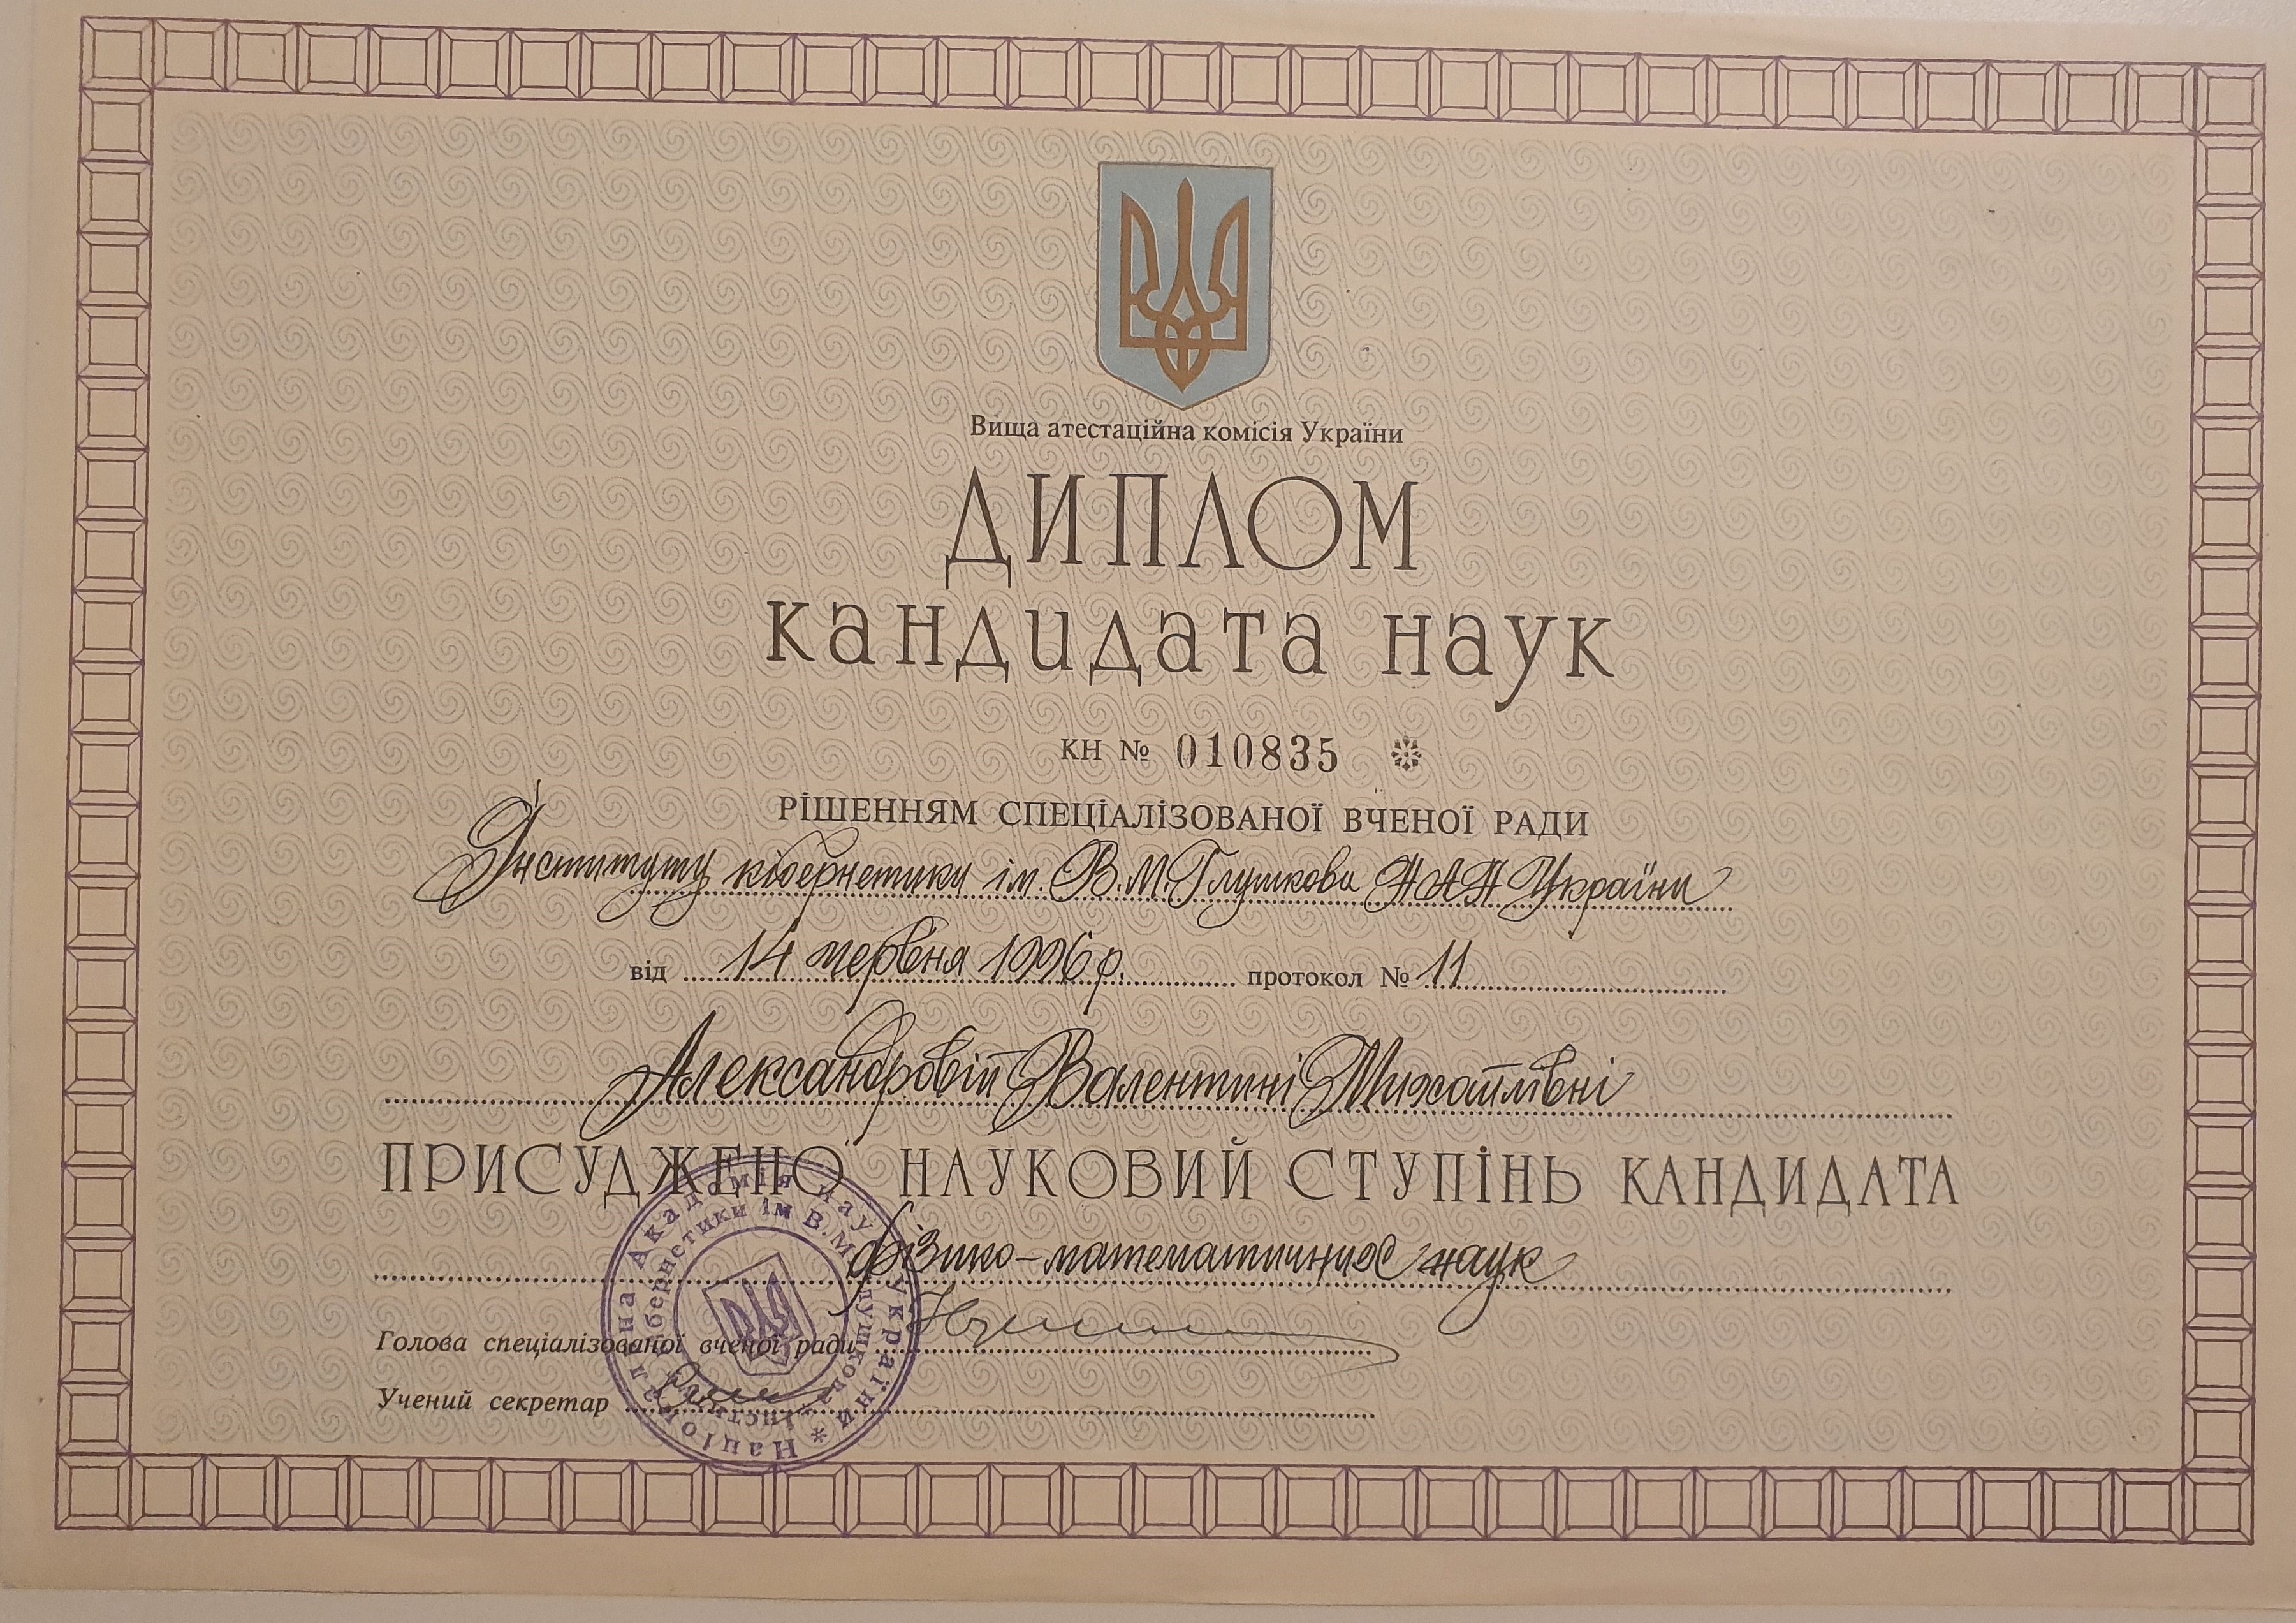 Вища атестаційна комісія України
ДИПЛОМ
кандидата наук
КН № 010835
РІШЕННЯМ СПЕЦІАЛІЗОВАНОЇ ВЧЕНОЇ РАДИ
Інституту кібернетики ім. В.М. Глушкова НАН України
від 14 червня 1996 р. протокол № 11
Александровій Валентині Михайлівні
ПРИСУДЖЕНО НАУКОВИЙ СТУПІНЬ КАНДИДАТА
фізико-математичних наук
Голова спеціалізованої вченої ради
Учений секретар
Національна Академія наук України *
кібернетики ім В.М. Глушкова